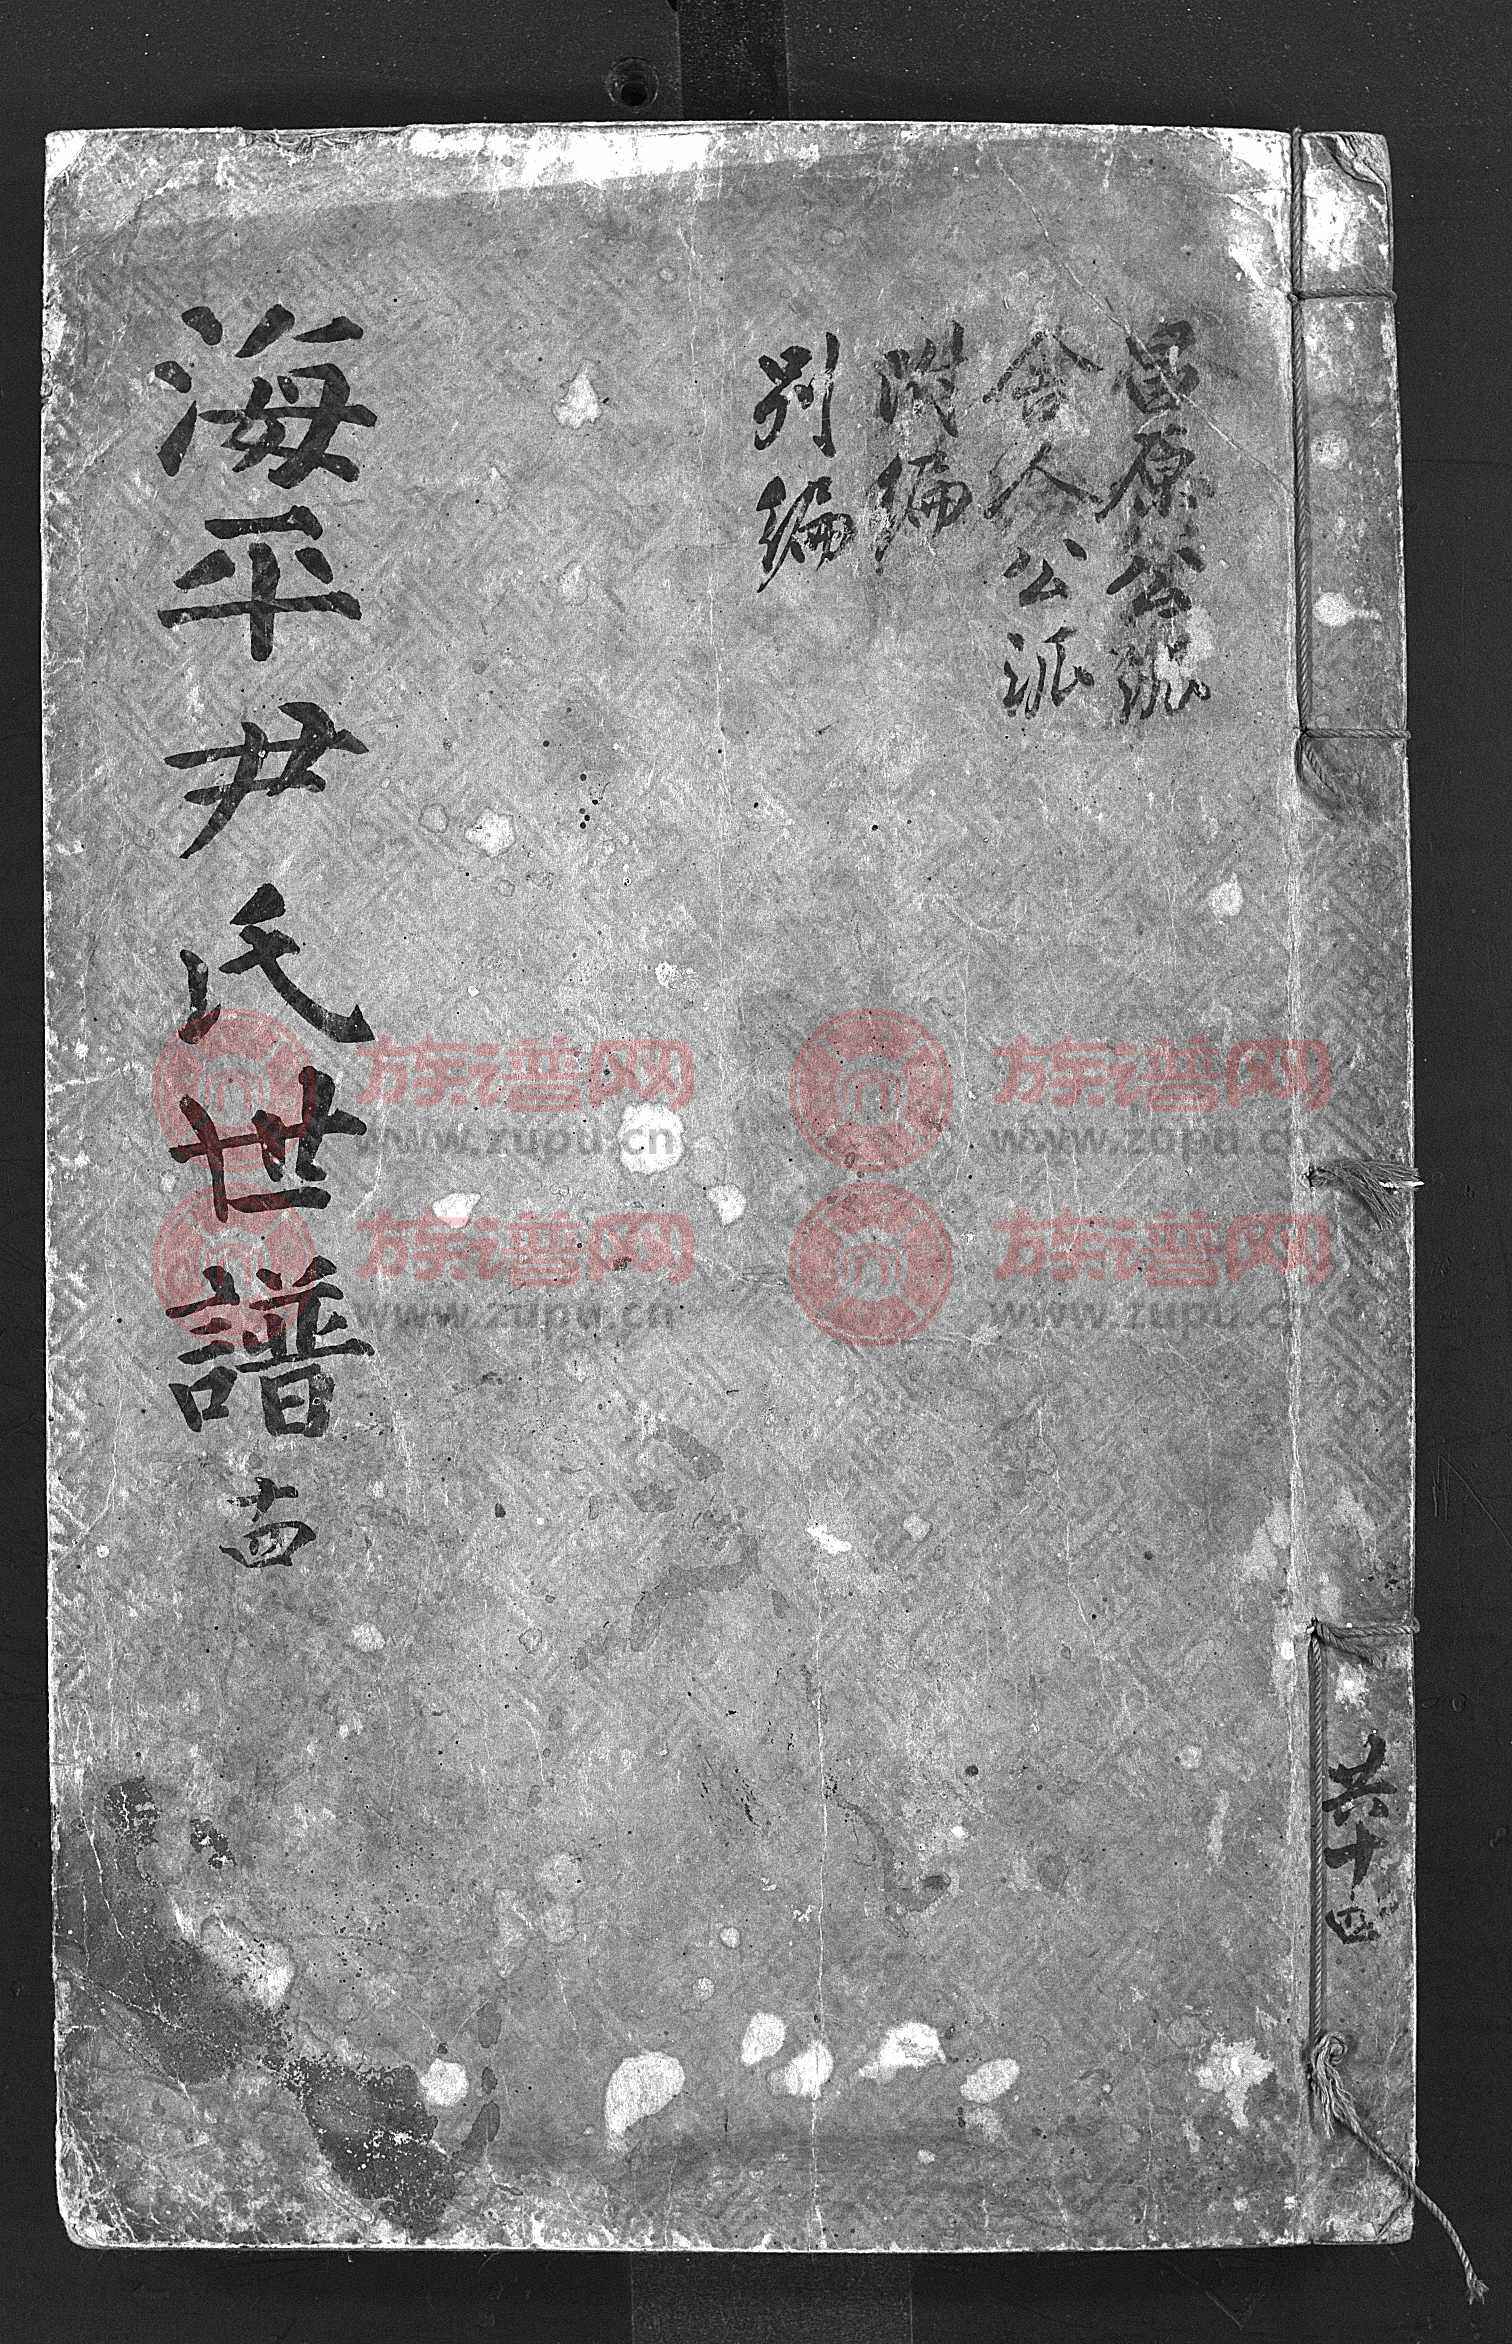 昌原公派
舍人公派
附編
別編
海平尹氏世譜 十四
共十四
族谱网
www.zupu.cn
族谱网
www.zupu.cn
族谱网
www.zupu.cn
族谱网
www.zupu.cn